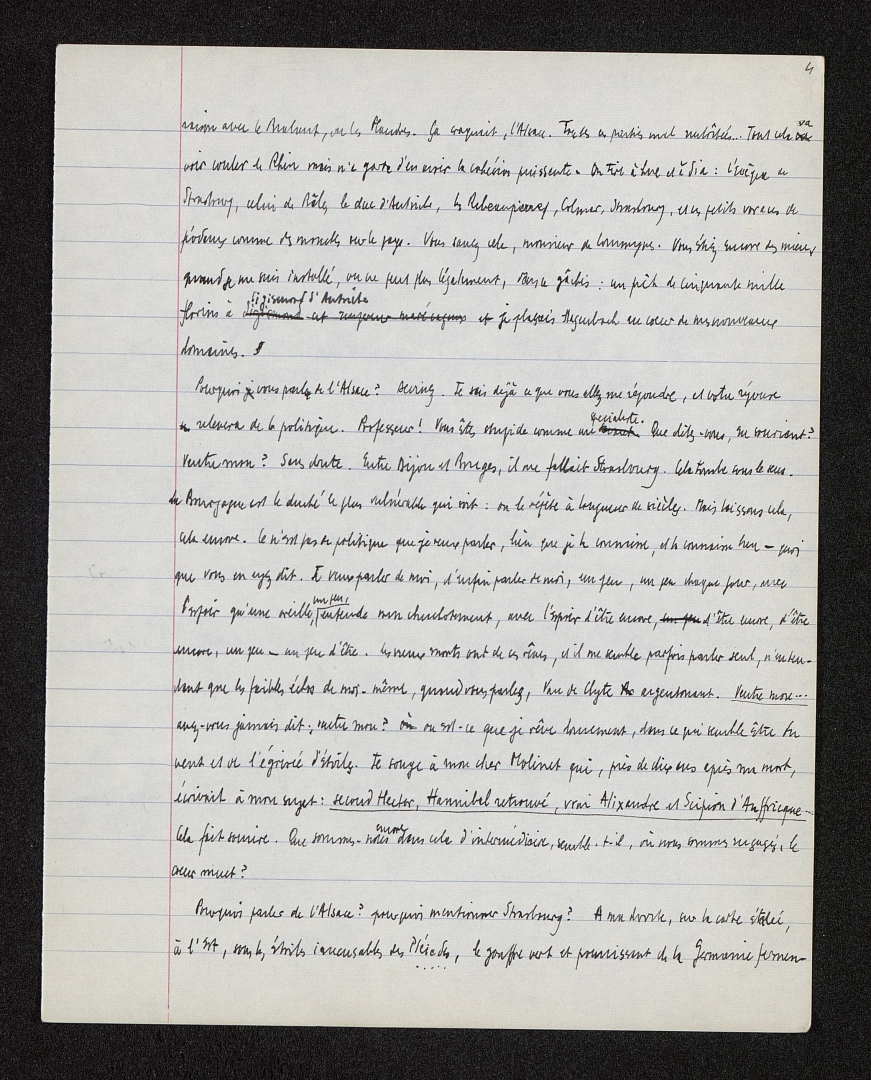 4
raison avec le Brabant, ou les Flandres. Ça craquait, l'Alsace. Toutes ces parties mal emboîtées... Tout cela va
voir couler le Rhin mais n'a garde d'en avoir la cohésion puissante. On tire à hue et à dia : l'évêque de
Strasbourg, celui de Bâle, le duc d'Autriche, les Ribeaupierre, Colmar, Strasbourg, et ces petits voraces de
féodaux comme des mouches sur le pays. Vous savez cela, monsieur de Commynes. Vous étiez encore des miens
quand je me suis installé, on ne peut plus légalement, dans ce gâchis : un prêt de cinquante mille
Sigismond d'Autriche
florins à et je plaçais Hagenbach au cœur de mes nouveaux
domaines.
Pourquoi vous parler de l'Alsace ? Devinez. Je sais déjà ce que vous allez me répondre, et votre réponse
spécialiste.
relèvera de la politique. Professeur ! Vous êtes stupide comme un Que dites-vous, en souriant ?
Ventre mon ? Sans doute. Entre Dijon et Bruges, il me fallait Strasbourg. Cela tombe sous le sens.
La Bourgogne est le duché le plus vulnérable qui soit : on le répète à longueur de siècles. Mais laissons cela,
cela encore. Ce n'est pas de politique que je veux parler, bien que je la connaisse, et la connaisse bien – quoi
que vous en ayez dit. Je veux parler de moi, d'enfin parler de moi, un peu, un peu chaque jour, avec
un peu,
l'espoir qu'une oreille, entende mon chuchotement, avec l'espoir d'être encore, d'être encore, d'être
encore, un peu – un peu d'être. Les vieux morts ont de ces rêves, et il me semble parfois parler seul, n'enten-
dant que les faibles échos de moi-même, quand vous parlez, Van de Clyte argentonant. Ventre mon...
avez-vous jamais dit : ventre mon ? ou est-ce que je rêve longuement, dans ce qui semble être du
vent et de l'égrisée d'étoiles. Je songe à mon cher Molinet qui, près de dix ans après ma mort,
écrivait à mon sujet : second Hector, Hannibal retrouvé, vrai Alixandre et Scipion d'Auffricque...
encore
Cela fait sourire. Que sommes-nous dans cela d'intermédiaire, semble-t-il, où nous sommes engagés, le
cœur muet ?
Pourquoi parler de l'Alsace ? pourquoi mentionner Strasbourg ? A ma droite, sur la carte étalée,
à l'Est, sous les étoiles inaccusables des Pléiades, le gouffre vert et pourrissant de la Germanie fermen-